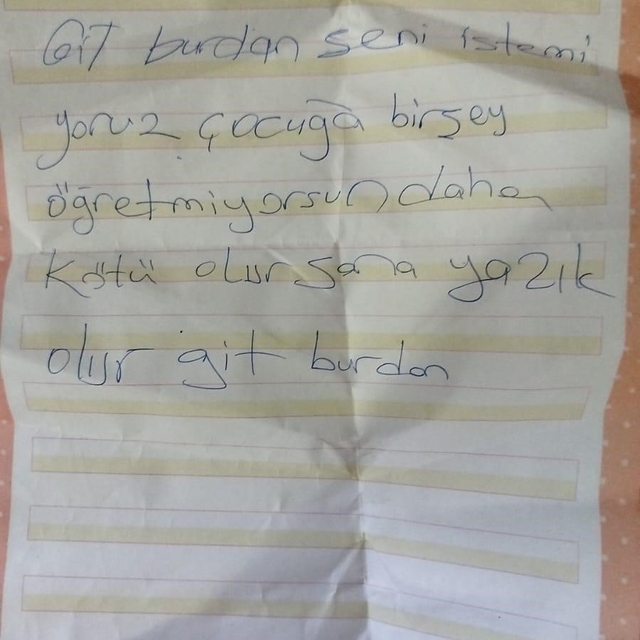 Git burdan seni istemi
yoruz çocuğa birşey
öğretmiyorsun daha
kötü olur sana yazık
olur git burdan